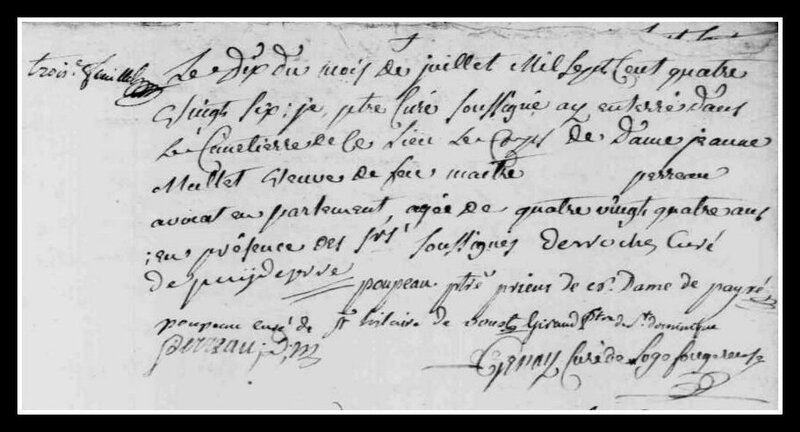 trois.e feuillet
Le Dix du mois de juillet Mil Sept Cent quatre
Vingt Six ; je, ptre Curé Soussigné ay enterré dans
Le Cimetierre de Ce Lieu Le Corps de Dame jeanne
Mallet Veuve de feu maitre perreau
avocat en parlement, agée de quatre vingt quatre ans
; en présence des srs Soussignes Derroches Curé
de puydeserre
poupeau ptre prieur de N. Dame de payré
poupeau curé de St hilaire de voust Giraud de St dominique
perreau; D, m
Curé de Loge fougereuse